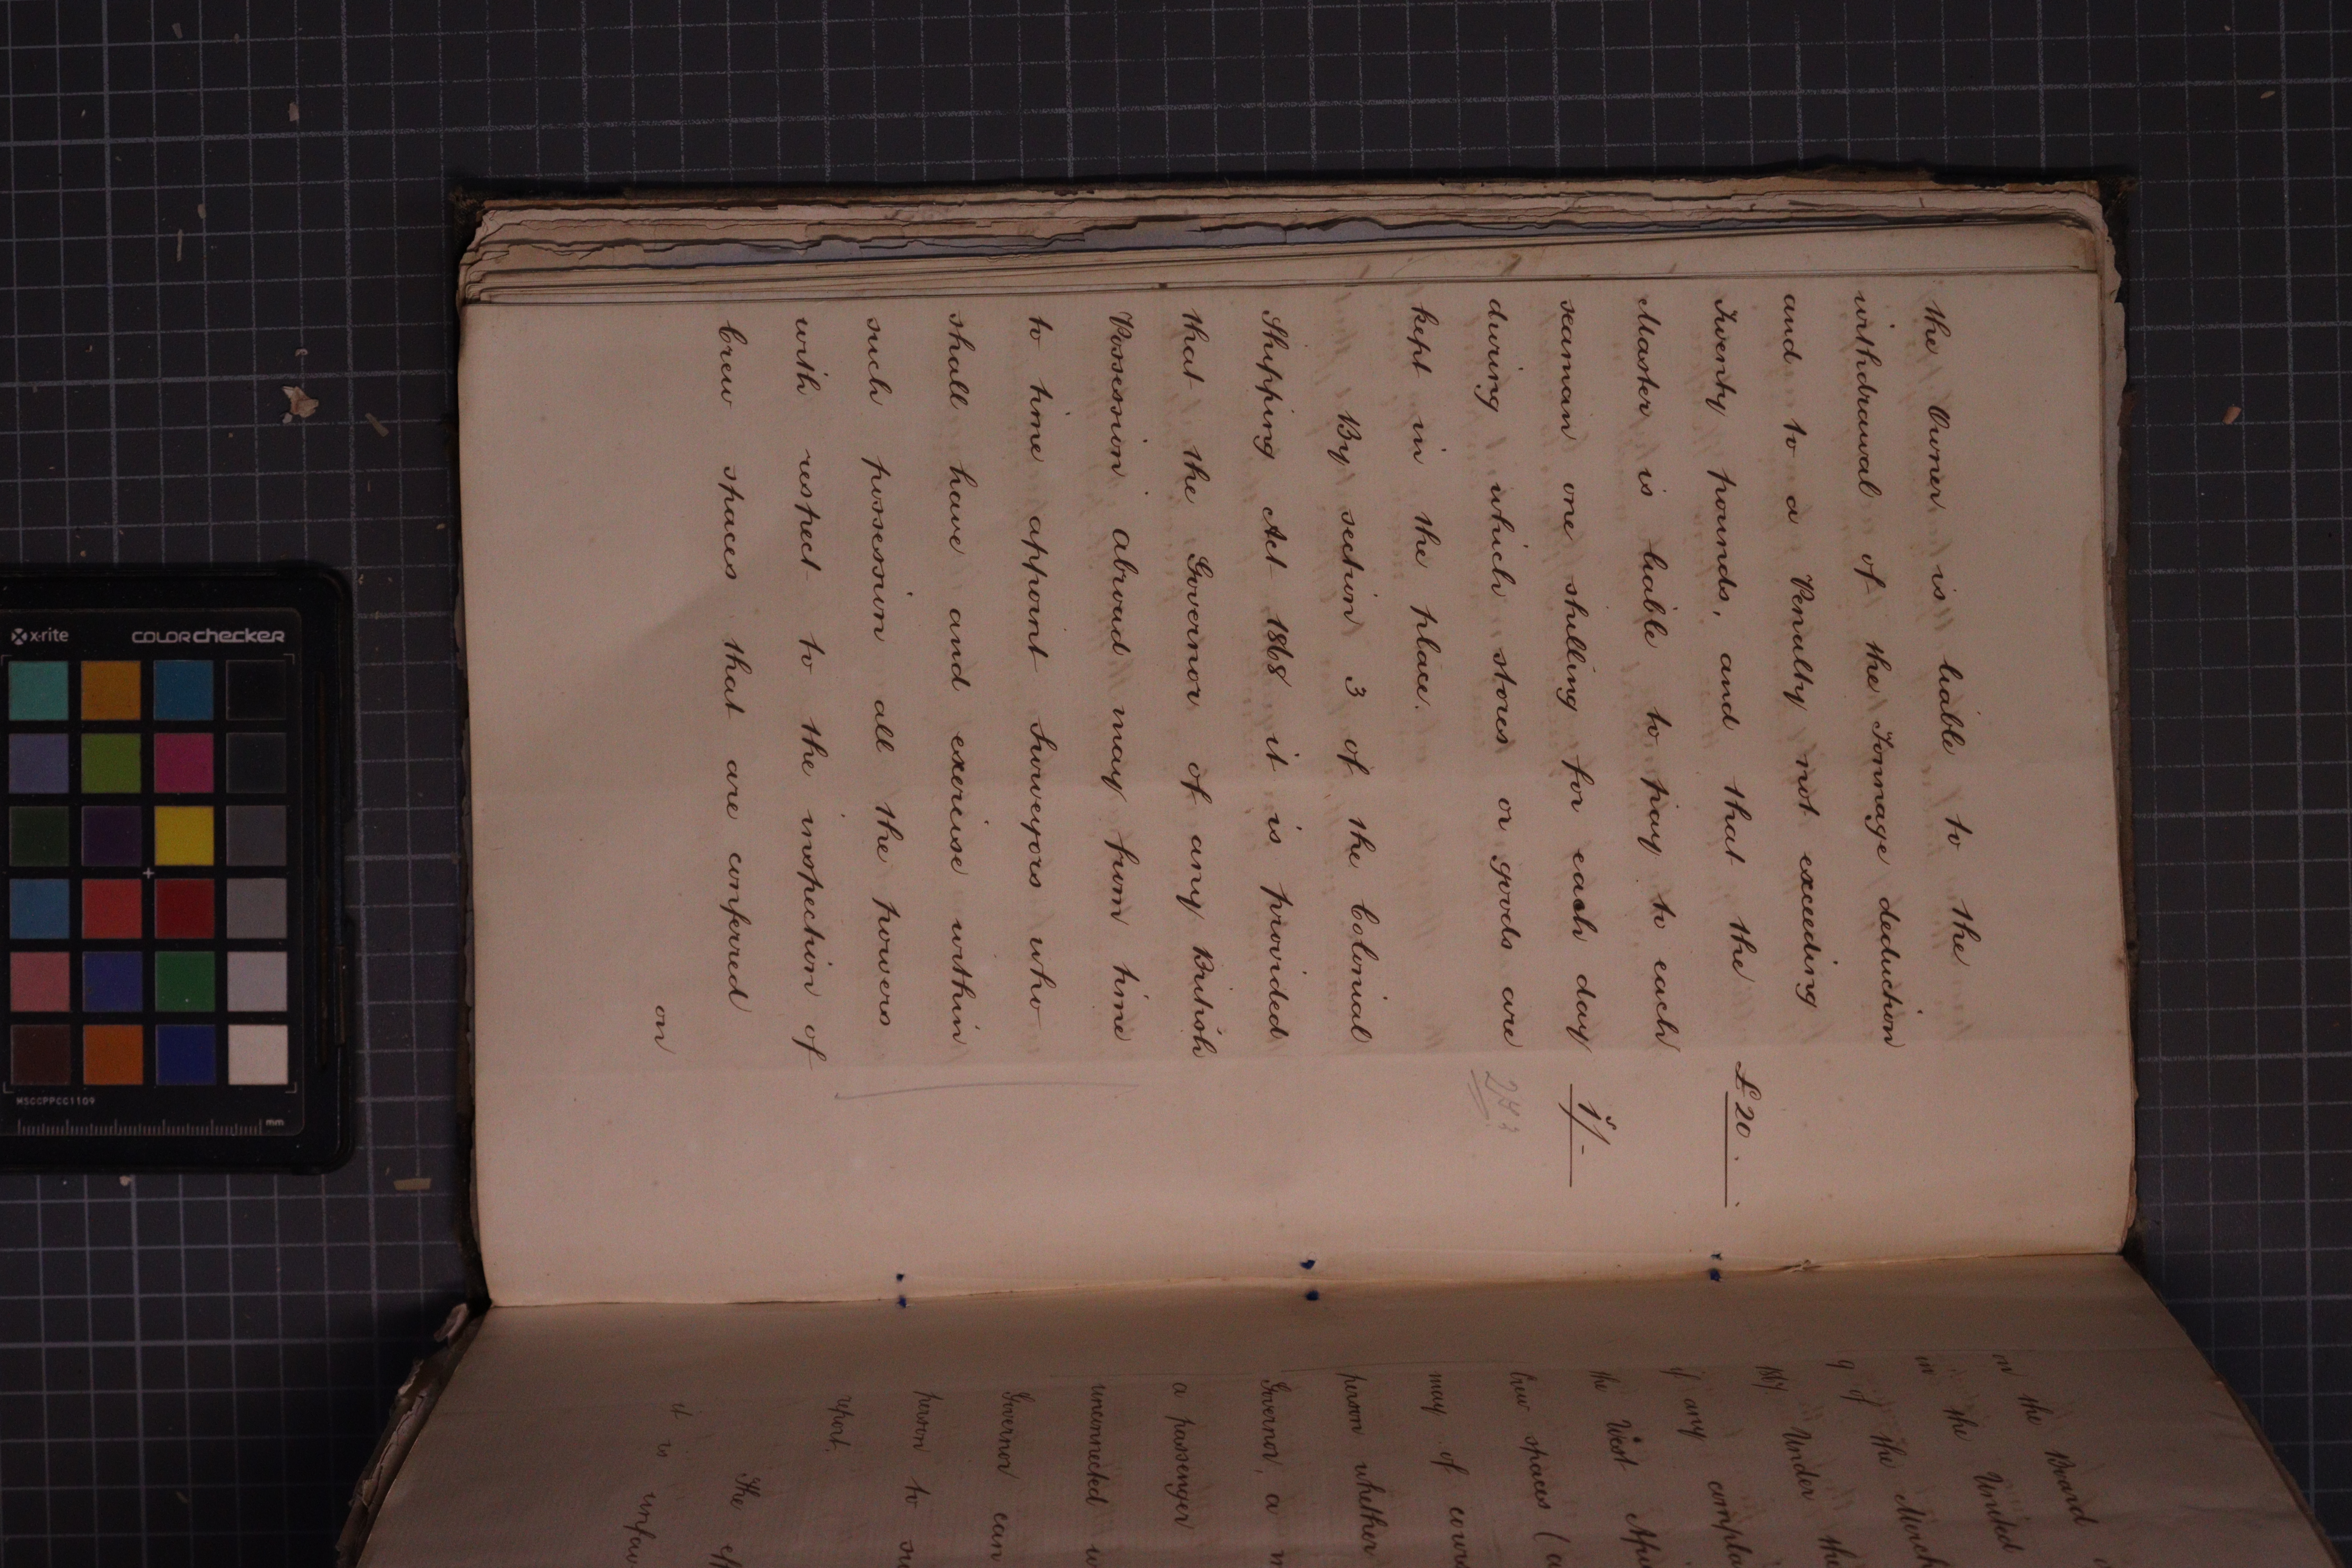 the Owner is liable to the
withdrawal of the Tonnage deduction
and to a Penalty not exceeding
Twenty pounds, and that the £20
Master is liable to pay to each
seaman one shilling for each day 1s/-
during which stores or goods are
kept in the place.
By section 3 of the Colonial
Shipping Act 1868 it is provided
that the Governor of any British
Possession abroad may from time
to time appoint Surveyors who
shall have and exercise within
such possession all the powers
with respect to the inspection of
Crew spaces that are conferred
on
on the Board
in the United
of the Merch
Under the
if any compla
the West Afri
Crew spaces (a
may of cours
person whether
Governor, a m
a passenger
unconnected w
Governor can
person to su
report.
The eff
it is unfav
x-rite colorchecker
MSCCPPCC1109
mm